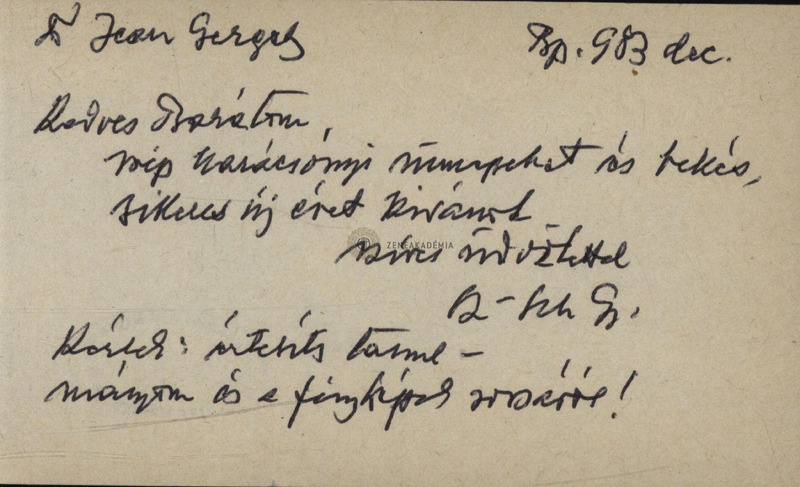 Dr Jean Gergely Bp. 983 dec.
Kedves Barátom,
szép karácsonyi ünnepeket és békés,
sikeres új évet kivánok
ZENEAKADÉMIA
szíves üdvözlettel
B-Sch Gy.
Kérlek: értesíts tanul-
mányom és a fényképek sorsáról!